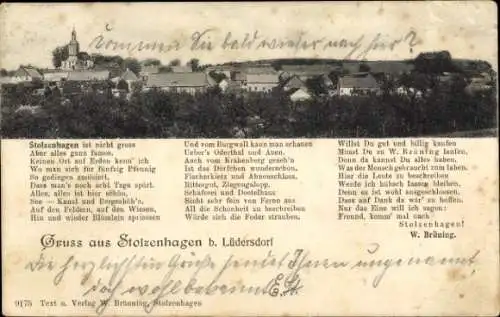 Kommen Sie bald wieder mal nach hier?
Stolzenhagen ist nicht gross
Aber alles ganz famos.
Keinen Ort auf Erden kenn' ich
Wo man sich für fünfzig Pfennig
So gediegen amüsirt
Dass man's noch acht Tage spürt.
Alles, alles ist hier schön,
See — Kanal und Bergeshöh'n.
Auf den Feldern, auf den Wiesen,
Hin und wieder Blümlein spriessen
Und vom Burgwall kann man schauen
Ueber's Oderthal und Auen.
Auch vom Krähenberg geseh'n
Ist das Dörfchen wunderschön.
Fischerkietz und Ahnenschloss,
Rittergut, Ziegengalopp,
Schäferei und Dostelhaus
Sieht sehr fein von Ferne aus
All die Schönheit zu beschreiben
Würde sich die Feder sträuben.
Willst Du gut und billig kaufen
Musst Du zu W. Brüning laufen,
Denn da kannst Du alles haben,
Was der Mensch gebraucht zum laben.
Hier die Leute zu beschreiben
Werde ich hübsch lassen bleiben,
Denn es ist wohl ausgeschlossen,
Dass auf Dank da wär' zu hoffen.
Nur das Eine will ich sagen:
Freund, komm' mal nach
Stolzenhagen!
W. Brüning.
Gruss aus Stolzenhagen b. Lüdersdorf
Die herzlichsten Grüße sendet Ihnen ungenannt,
doch wohlbekannt.
9175 Text u. Verlag W. Brüning, Stolzenhagen